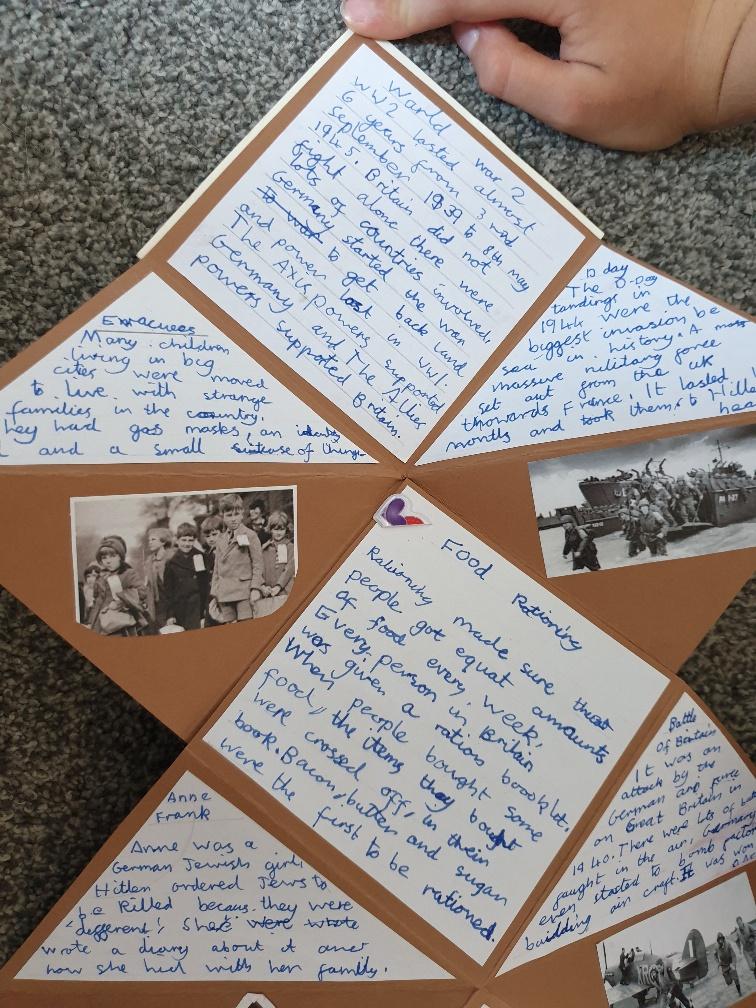 World War 2
WW2 lasted almost
6 years from 3rd
September 1939 to 8th May
1945. Britain did not
fight alone there were
lots of countries involved.
Germany started the war
to get back land
and power lost in WW1.
The Axis powers supported
Germany and The Allies
powers supported Britain.
D day
The D-Day
landings in
1944 were the
biggest invasion be
sea in history. A
massive military force
set out from the UK
thowards France. It lasted
months and took them to
Evacuees
Many children
living in big
cities were moved
to live with strange
families in the country.
hey had gas maskes, an identity
and a small suitcase of things
Food Rationing
Rationing made sure that
people got equat amounts
of food every week.
Every person in Britain
was given a ration boooklet.
When people bought some
food, the items they bought
were crossed off, in their
book. Bacon, butter and sugar
were the first to be rationed.
Battle
of Britain
It was an
attack by the
German air force
on Great Britain in
1940. There were lots of
faught in the air. Germany
even started to bomb
buidding air craft. It was won
Anne
Frank
Anne was a
German Jewish girl.
Hitler ordered Jews to
be killed becaus they were
'different'. She
wrote a diary about it and
how she hid with her family.